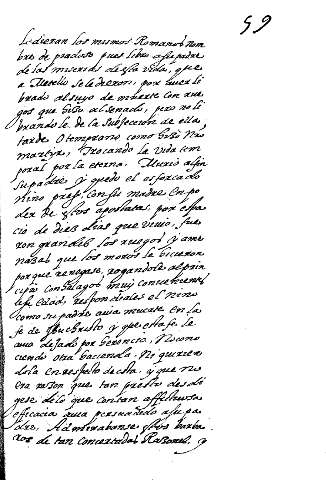 59
le dieran los mismos Romanos nom
bre de piadoso pues libro a su padre
de las miserias de esta vida, que
a Metelio se le dieron, por haver li
brado al suyo de muerte con rue
gos que hizo al senado, pero no li
brandole de la subjeccion de ella
tarde o temprano como hizo
martyr, trocando la vida tem
poral por la eterna. Murio al fin
su padre y quedo el esforcado
niño preso con su madre en po
der de estos apostatas, por espa
cio de diez dias que vivio, fue
ron grandes los ruegos y ame
nazas que los moros le hicieron
porque renegase, rogandole al prin
cipio con halagos muy
su edad, respondiales el niño
como su padre avia muerto en la
fe de Jhuchristo y que esta fe le
avia dejado por herencia, No cono
ciendo otra hacienda. Ni querien
dola en respeto de esta, y que no
era razon que tan presto des di
gese de lo que con tan affectuosa
eficacia avia persuadido a su pa
dre, Admirabanse estos barba
ros de tan concertadas Razones. y